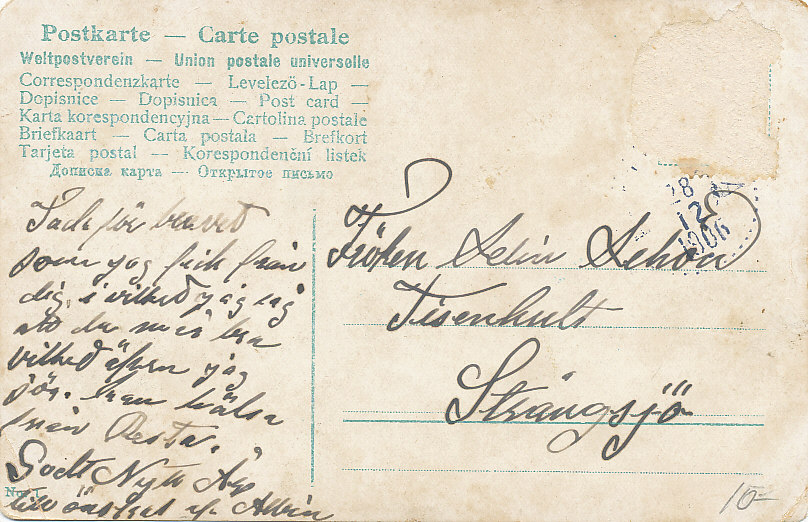 Postkarte — Carte postale
Weltpostverein — Union postale universelle
Correspondenzkarte — Levelező-Lap —
Dopisnice — Dopisnica — Post card —
Karta korespondencyjna — Cartolina postale
Briefkaart — Carta postala — Brefkort
Tarjeta postal — Korespondenční listek
Дописна карта — Открытое письмо
28
12
1906
Tack för brevet
som jag fick från
dig, i vilket jag såg
att du mår bra
vilket äfven jag
gör. kan hälsa
från
Godt Nytt År
tillönskat af Albin
Fröken Schön
Tisenhult
Strångsjö
No. 1
10-